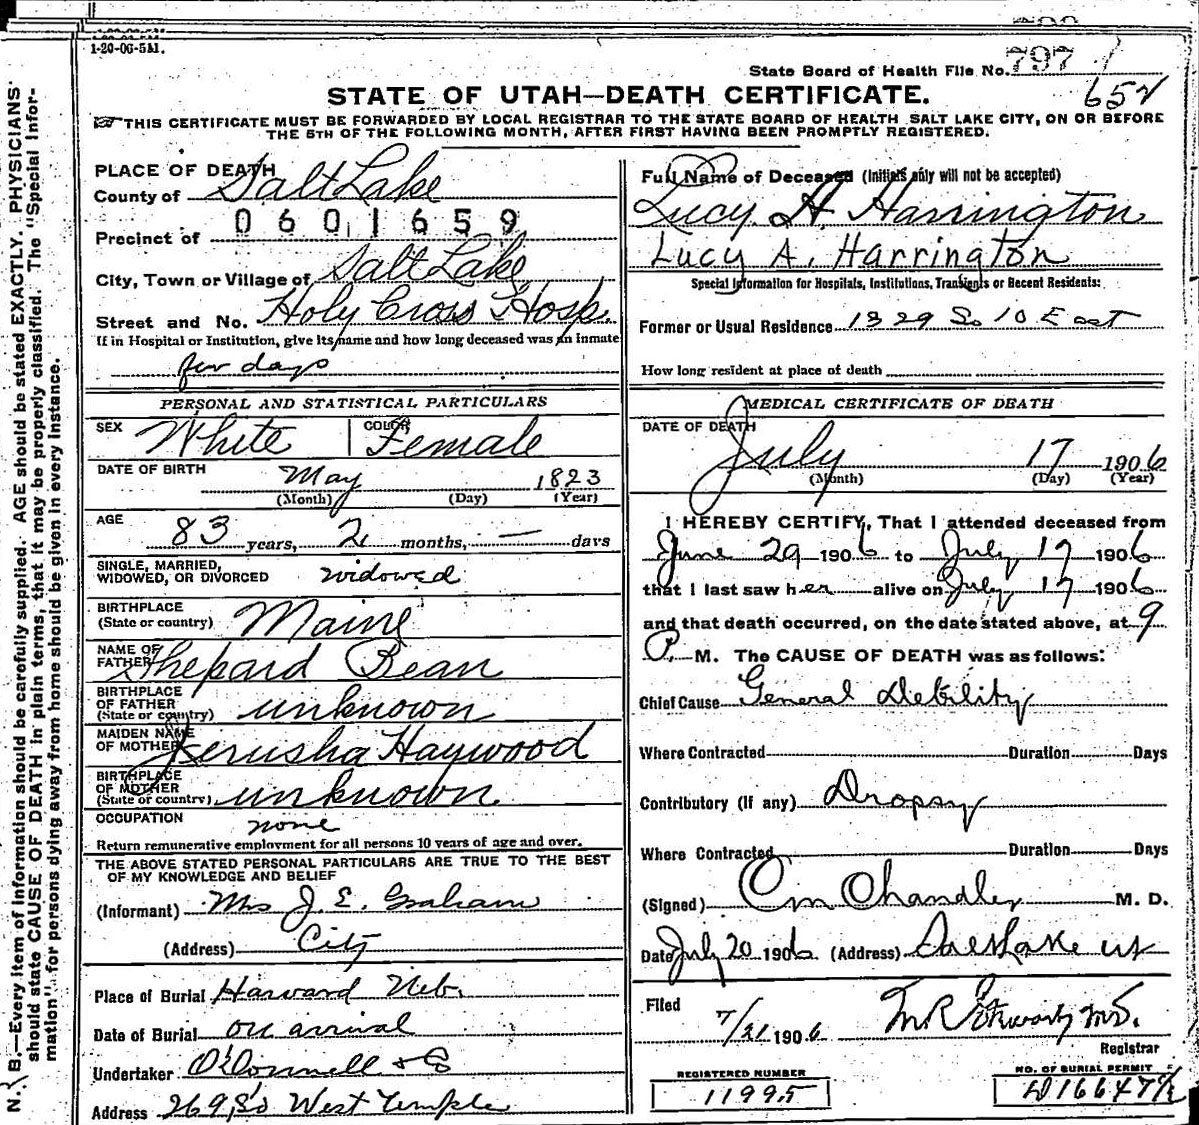 1-20-06-5M.
State Board of Health File No. 797
652
STATE OF UTAH—DEATH CERTIFICATE.
THIS CERTIFICATE MUST BE FORWARDED BY LOCAL REGISTRAR TO THE STATE BOARD OF HEALTH SALT LAKE CITY, ON OR BEFORE
THE 5TH OF THE FOLLOWING MONTH, AFTER FIRST HAVING BEEN PROMPTLY REGISTERED.
PLACE OF DEATH
County of Salt Lake
0601659
Precinct of
City, Town or Village of Salt Lake
Street and No. Holy Cross Hosp.
If in Hospital or Institution, give its name and how long deceased was an inmate
few days
PERSONAL AND STATISTICAL PARTICULARS
SEX White COLOR Female
DATE OF BIRTH May 1823
(Month) (Day) (Year)
AGE 83 years, 2 months, — days
SINGLE, MARRIED,
WIDOWED, OR DIVORCED widowed
BIRTHPLACE
(State or country) Maine
NAME OF
FATHER Shepard Bean
BIRTHPLACE
OF FATHER
(State or country) unknown
MAIDEN NAME
OF MOTHER Jerusha Haywood
BIRTHPLACE
OF MOTHER
(State or country) unknown
OCCUPATION none
Return remunerative employment for all persons 10 years of age and over.
THE ABOVE STATED PERSONAL PARTICULARS ARE TRUE TO THE BEST
OF MY KNOWLEDGE AND BELIEF
(Informant) Mrs J. E. Graham
(Address) City
Place of Burial Harvard Neb.
Date of Burial on arrival
Undertaker O'Donnell & Co
Address 269 So West Temple
Full Name of Deceased (Initials only will not be accepted)
Lucy A Harrington
Lucy A. Harrington
Special Information for Hospitals, Institutions, Transients or Recent Residents:
Former or Usual Residence 1329 So 10 East
How long resident at place of death
MEDICAL CERTIFICATE OF DEATH
DATE OF DEATH July 17 1906
(Month) (Day) (Year)
I HEREBY CERTIFY, That I attended deceased from
June 29 1906 to July 17 1906
that I last saw her alive on July 17 1906
and that death occurred, on the date stated above, at 9
P. M. The CAUSE OF DEATH was as follows:
Chief Cause General Debility
Where Contracted Duration Days
Contributory (If any) Dropsy
Where Contracted Duration Days
(Signed) Chandler M. D.
Date July 20 1906 (Address) Salt Lake Ut
Filed 7/21 1906
M.D.
Registrar
REGISTERED NUMBER
11995
NO. OF BURIAL PERMIT
N. B.—Every item of information should be carefully supplied. AGE should be stated EXACTLY. PHYSICIANS
should state CAUSE OF DEATH in plain terms, that it may be properly classified. The "Special Infor-
mation" for persons dying away from home should be given in every instance.